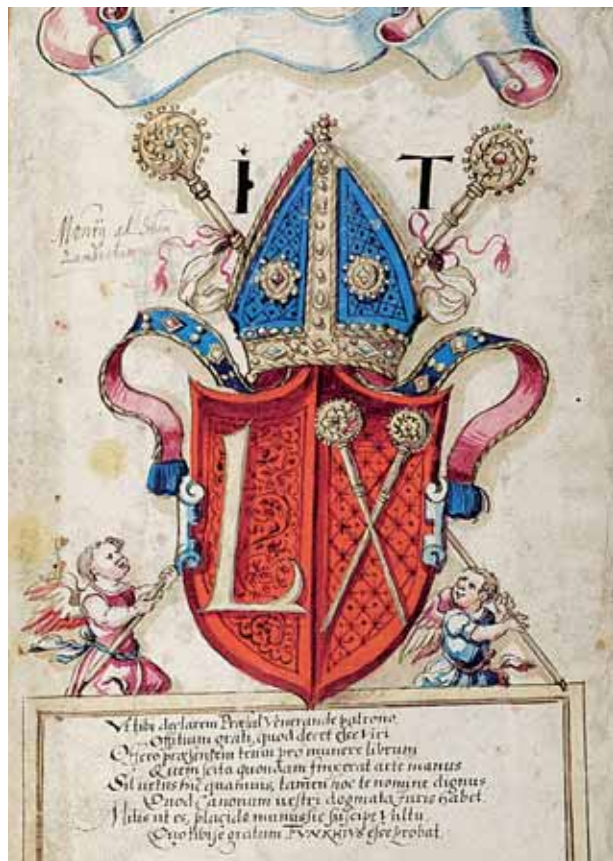 I T
Monrij al
L
Ut tibi declarem Præsul Venerande patrono
Offitium grati, quod decet esse Viri
Offero præsentem tenui pro munere librum
Quem scita quondam finxerat arte manus
Sit vetus hic quamuis, tamen hoc te nomine dignus
Quod Canonum vestri dogmata Iuris habet
Mitis ut es, placido munus sic suscipe Vultu
Quo tibi se gratum FVNKHIVS esse probat.